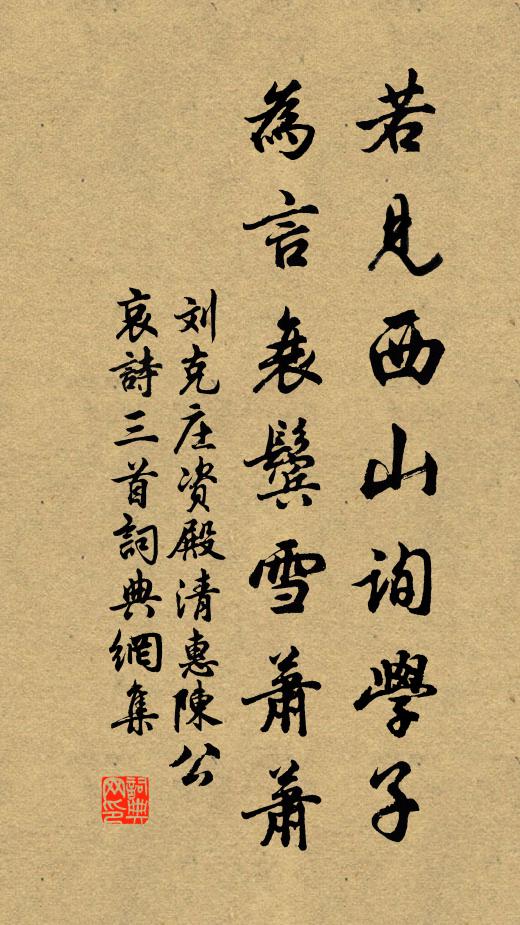 若見西山詢學子
為言衰鬢雪蕭蕭
刘克庄资殿清惠陳公
哀詩三首詞典網集
詞典网印